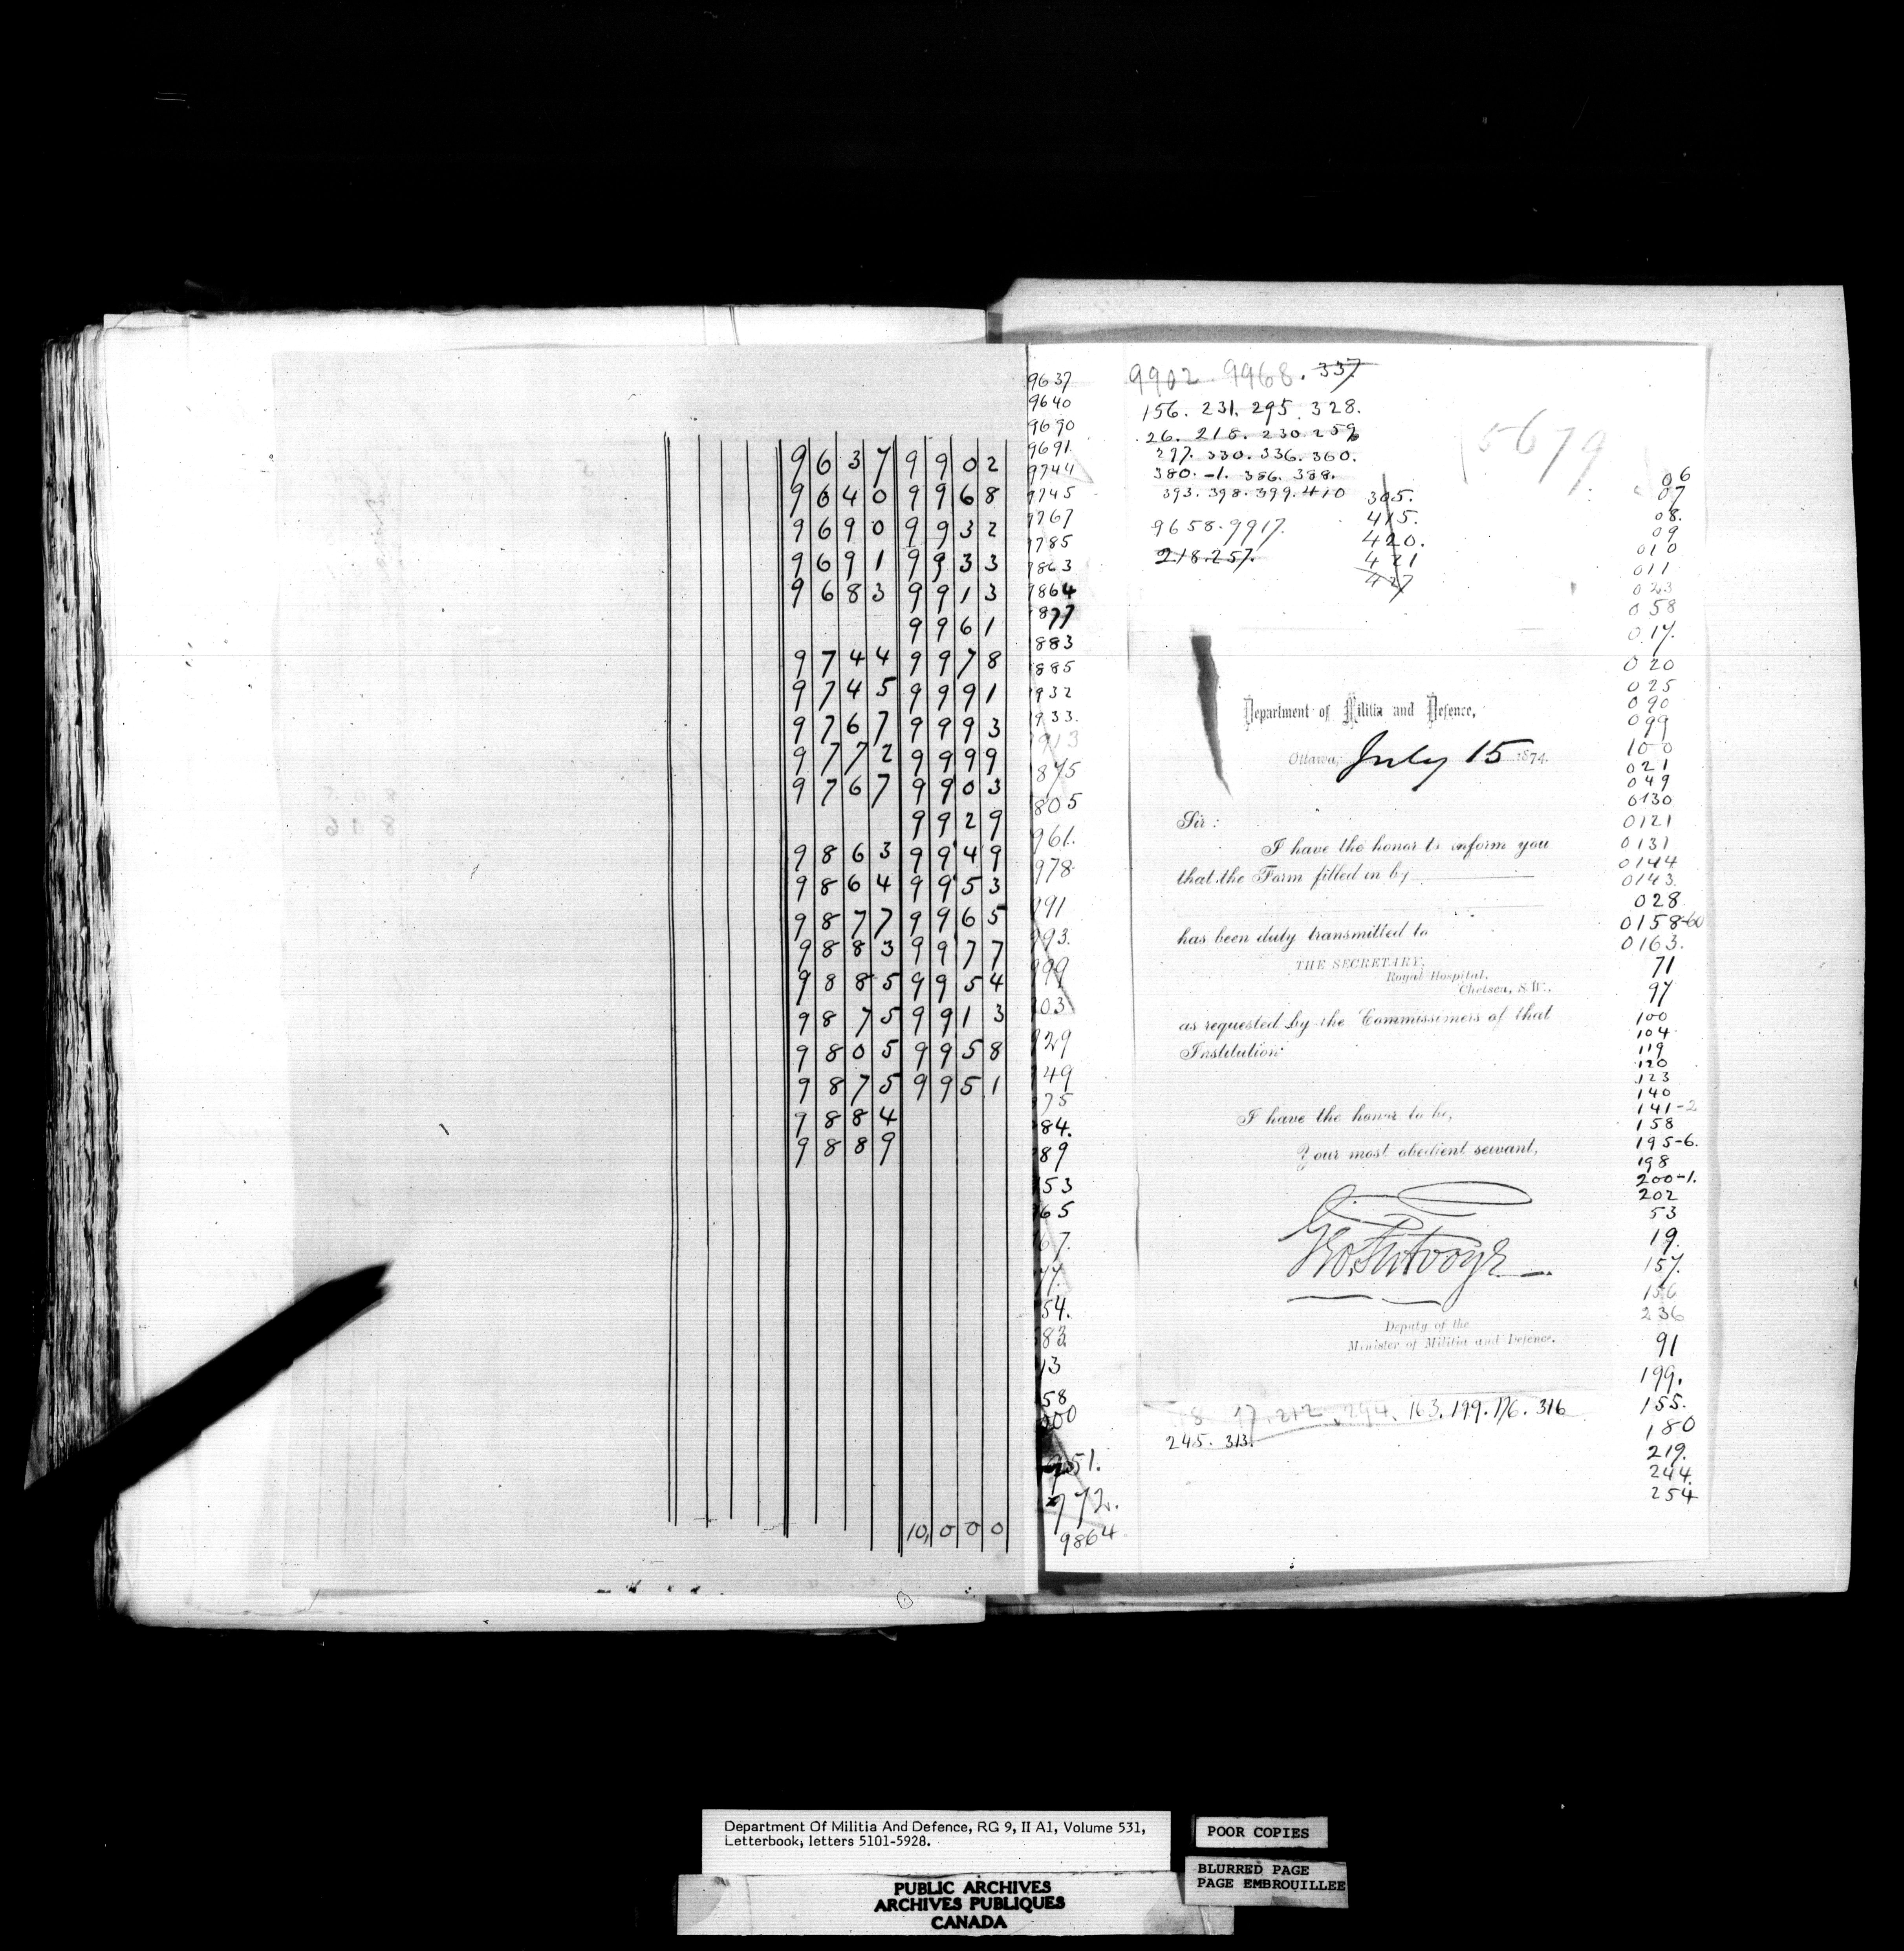 9637 9902
9640 9968
9690 9932
9691 9933
9683 9913
9961
9744 9978
9745 9991
9767 9993
9772 9999
9767 9903
9929
9863 9949
9864 9953
9877 9965
9883 9977
9885 9954
9875 9913
9805 9958
9875 9951
9884
9889
10,000
9637
9640
9690
9691
9744
9745
9767
9785
9863
9864
883
885
932
933.
913
875
805
961.
978
991
993.
999
03
929
49
75
84.
89
53
65
67.
77.
54.
83.
13
58
000
951.
972.
9864
9902. 9968. 337
156. 231. 295. 328.
26. 218. 230. 259
297. 330. 336. 360.
380. -1. 386. 388.
393. 398. 399. 410
305.
415.
420.
421
427
9658. 9917.
218. 257.
5679
Department of Militia and Defence,
Ottawa, July 15 1874.
Sir:
I have the honor to inform you
that the Form filled in by
has been duly transmitted to
THE SECRETARY,
Royal Hospital,
Chelsea, S.W.,
as requested by the Commissioners of that
Institution
I have the honor to be,
Your most obedient servant,
Deputy of the
Minister of Militia and Defence.
18 17. 212. 294. 163. 199. 176. 316
245. 313.
06
07
08.
09
010
011
023
058
017.
020
025
090
099
100
021
049
0130
0121
0131
0144
0143.
028
0158-60
0163.
71
97
100
104
119
120
123
140
141-2
158
195-6.
198
200-1.
202
53
19.
157.
156
236
91
199.
155.
180
219.
244.
254
Department Of Militia And Defence, RG 9, II A1, Volume 531,
Letterbook, letters 5101-5928.
POOR COPIES
BLURRED PAGE
PAGE EMBROUILLEE
PUBLIC ARCHIVES
ARCHIVES PUBLIQUES
CANADA